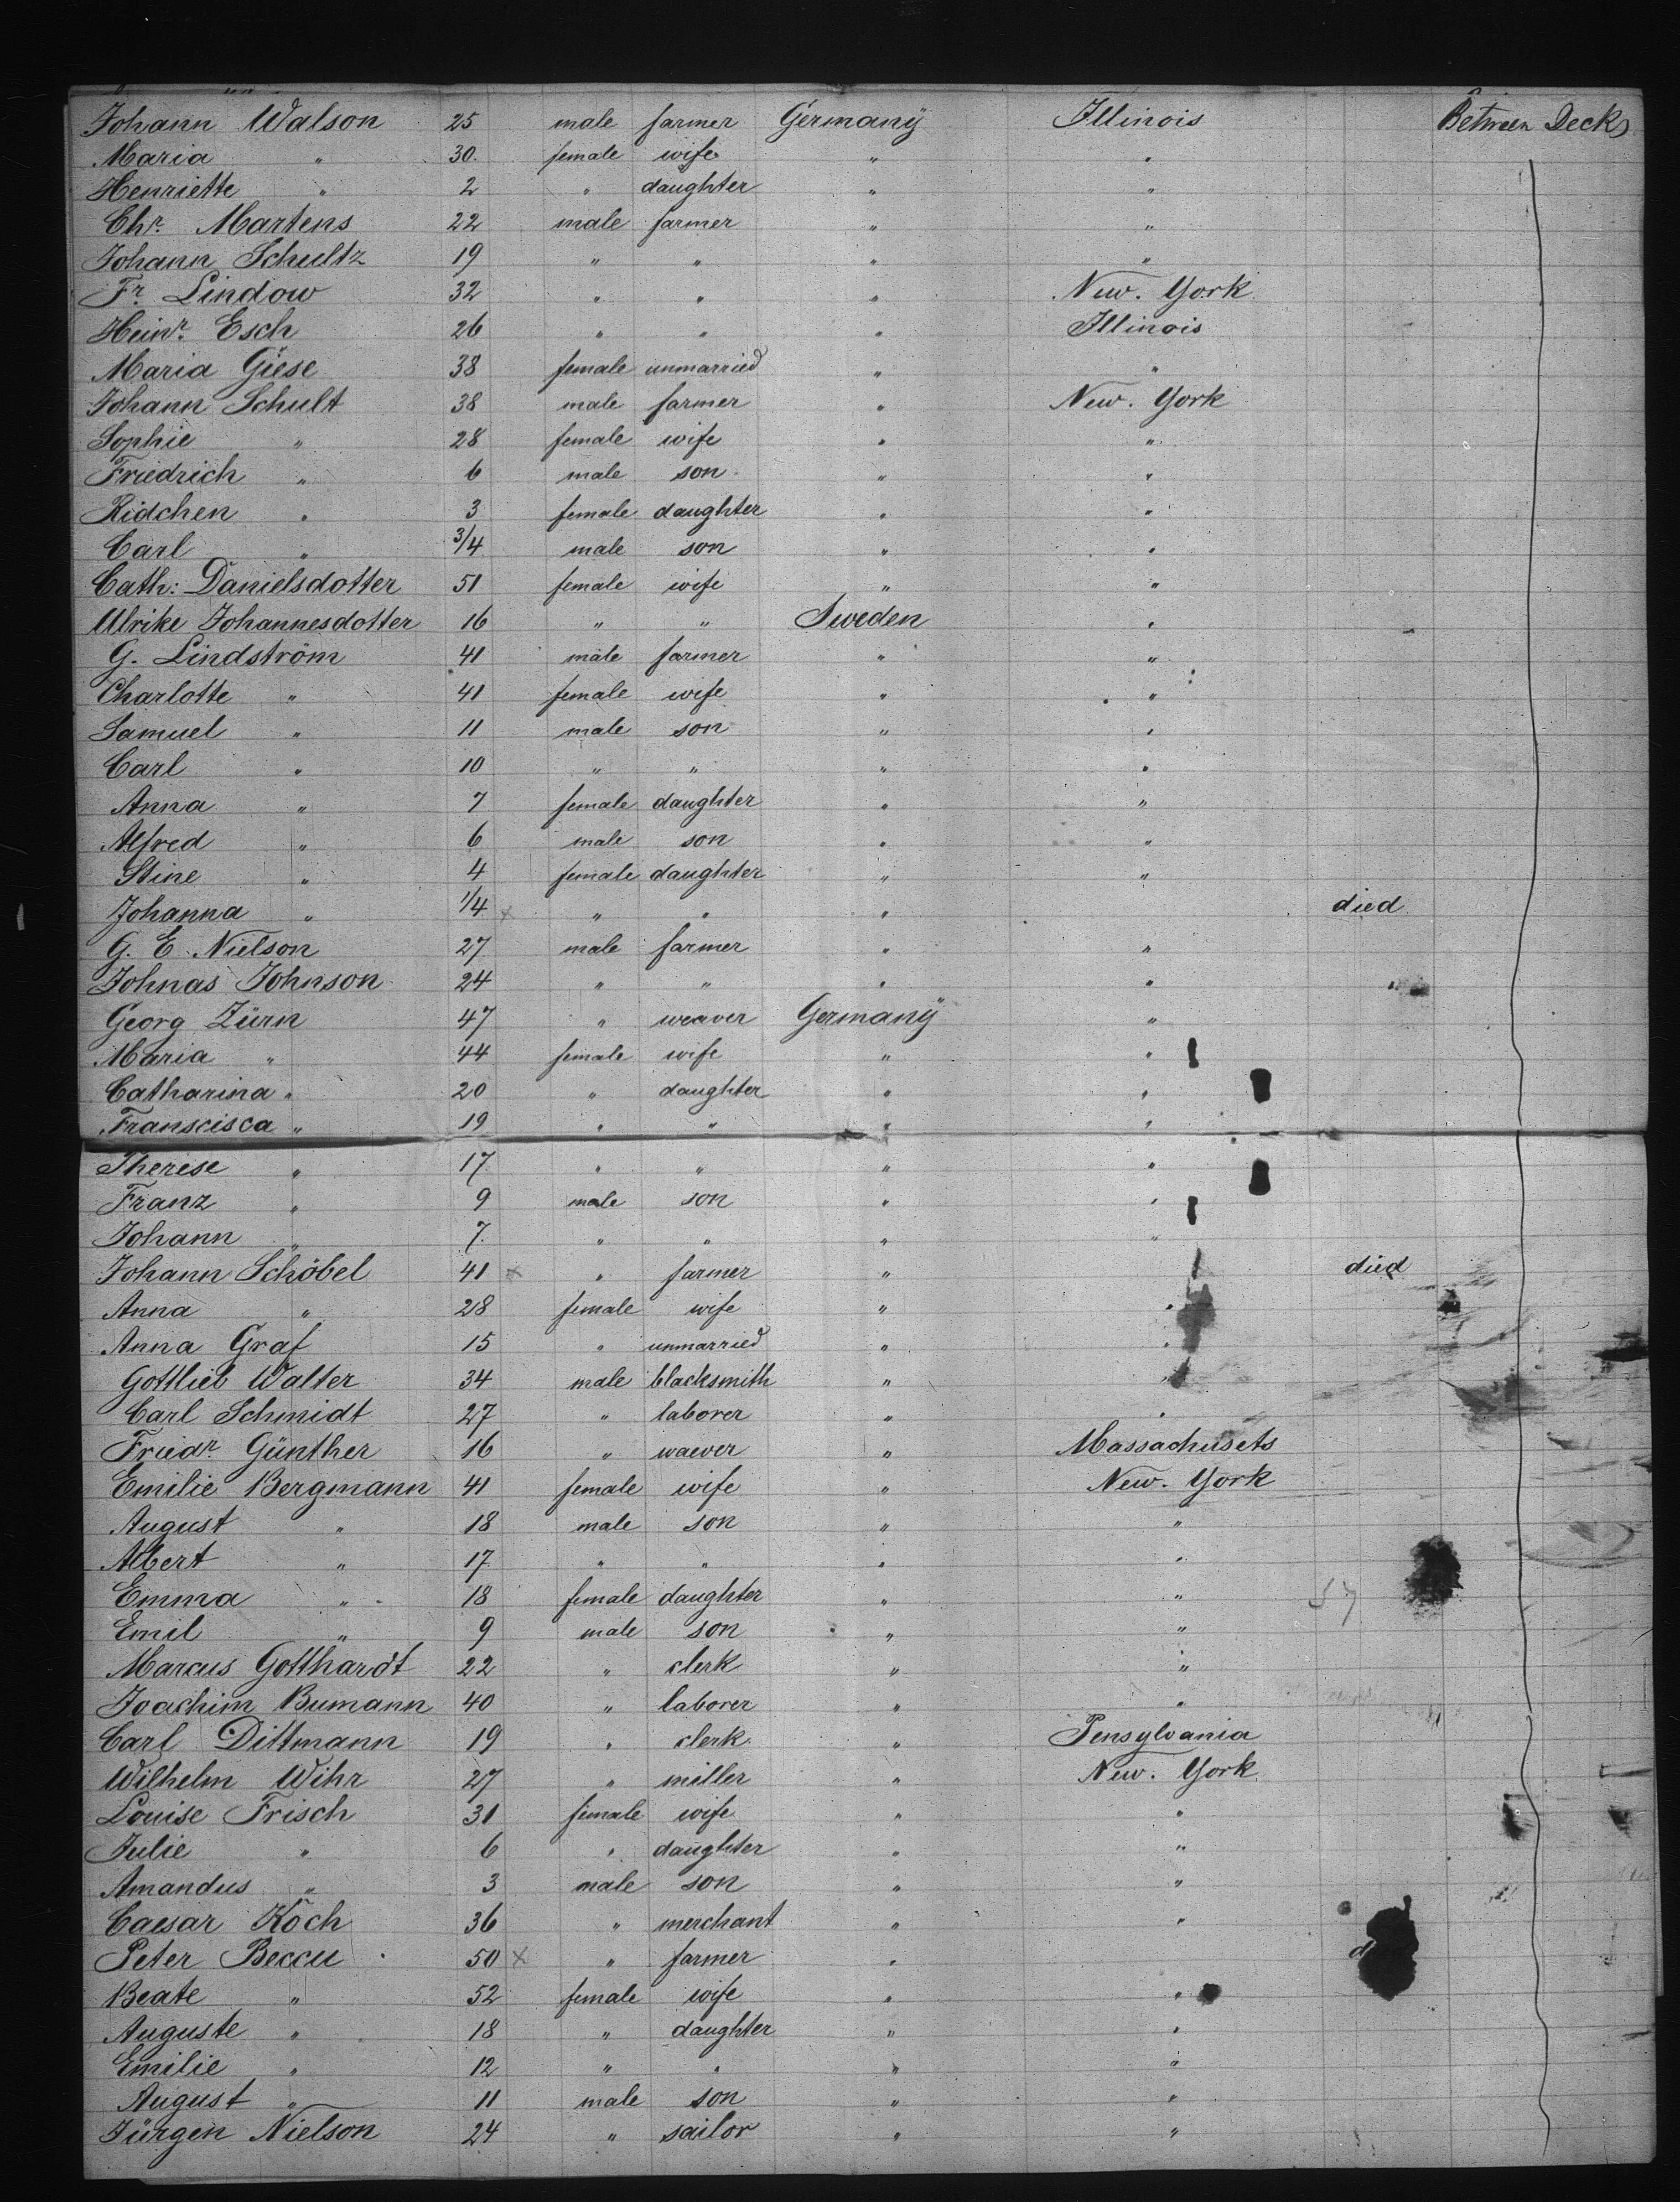 Johann Walson 25 male farmer Germany Illinois Between Decks
Maria " 30. female wife " "
Henriette " 2 " daughter " "
Chr. Martens 22 male farmer " "
Johann Schultz 19 " " " "
Fr. Lindow 32 " " " New. York
Heinr. Esch 26 " " " Illinois
Maria Giese 38 female unmarried " "
Johann Schult 38 male farmer " New. York
Sophie " 28 female wife " "
Friedrich " 6 male son " "
Ridchen " 3 female daughter " "
Carl " 3/4 male son " "
Cath: Danielsdotter 51 female wife " "
Ulrike Johannesdotter 16 " " Sweden "
G. Lindström 41 male farmer " "
Charlotte " 41 female wife " "
Samuel " 11 male son " "
Carl " 10 " " " "
Anna " 7 female daughter " "
Alfred " 6 male son " "
Stine " 4 female daughter " "
Johanna " 1/4 x " " " died
G. E. Nielson 27 male farmer " "
Johnas Johnson 24 " " " "
Georg Zürn 47 " weaver Germany "
Maria " 44 female wife " "
Catharina " 20 " daughter " "
Franscisca " 19 " " " "
Therese " 17 " " " "
Franz " 9 male son " "
Johann " 7. " " " "
Johann Schöbel 41 x " farmer " died
Anna " 28 female wife " "
Anna Graf 15 " unmarried " "
Gottlieb Walter 34 male blacksmith " "
Carl Schmidt 27 " laborer " "
Friedr. Günther 16 " waever " Massachusets
Emilie Bergmann 41 female wife " New. York
August " 18 male son " "
Albert " 17 " " " "
Emma " 18 female daughter " " 57
Emil " 9 male son " "
Marcus Gotthardt 22 " clerk " "
Joachim Bumann 40 " laborer " "
Carl Dittmann 19 " clerk " Pensylvania
Wilhelm Wihr 27 " miller " New. York
Louise Frisch 31 female wife " "
Julie " 6 " daughter " "
Amandus " 3 male son " "
Caesar Koch 36 " merchant " "
Peter Beccu 50 x " farmer " d
Beate " 52 female wife " "
Auguste " 18 " daughter " "
Emilie " 12 " " " "
August " 11 male son " "
Jürgen Nielson 24 " sailor " "